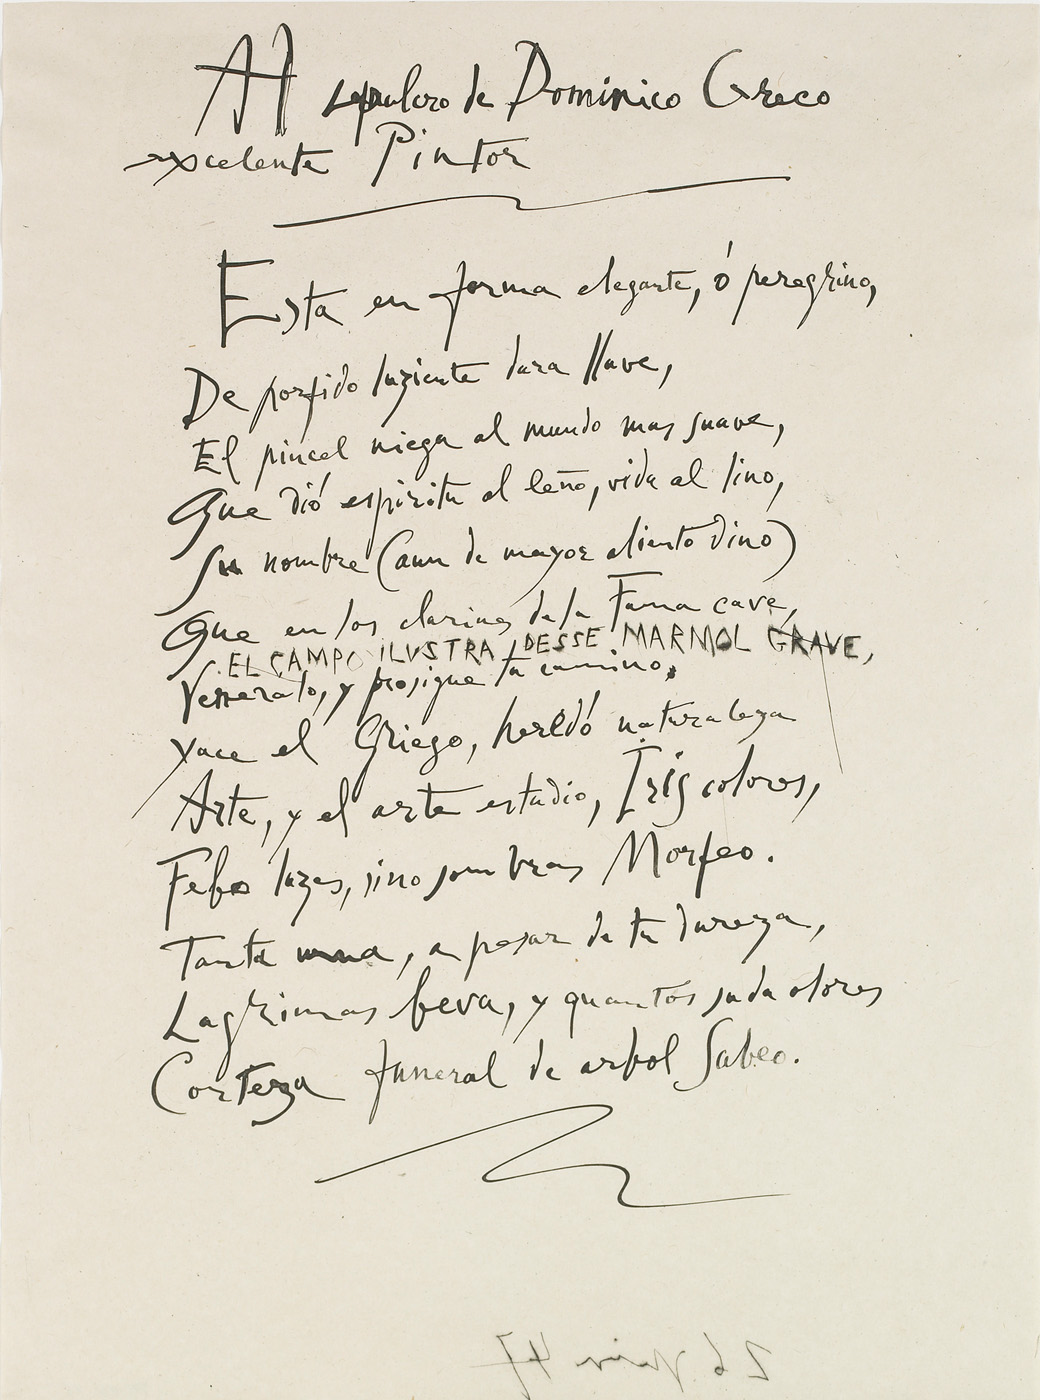 Al sepulcro de Dominico Greco
excelente Pintor
Esta en forma elegante, ó peregrino,
De porfido luziente dura llave,
El pincel niega al mundo mas suave,
Que dió espiritu al leño, vida al lino,
Su nombre (aun de mayor aliento dino)
Que en los clarines de la Fama cave,
EL CAMPO ILVSTRA DESSE MARMOL GRAVE,
Venerato, y prosigue tu camino.
Yace el Griego, heredó naturaleza
Arte, y el arte estudio, Iris colores,
Febo luzes, sino sombras Morfeo.
Tanta urna, a pesar de tu dureza,
Lagrimas beva, y quantos suda olores
Corteza funeral de arbol Sabeo.
26 juin 47